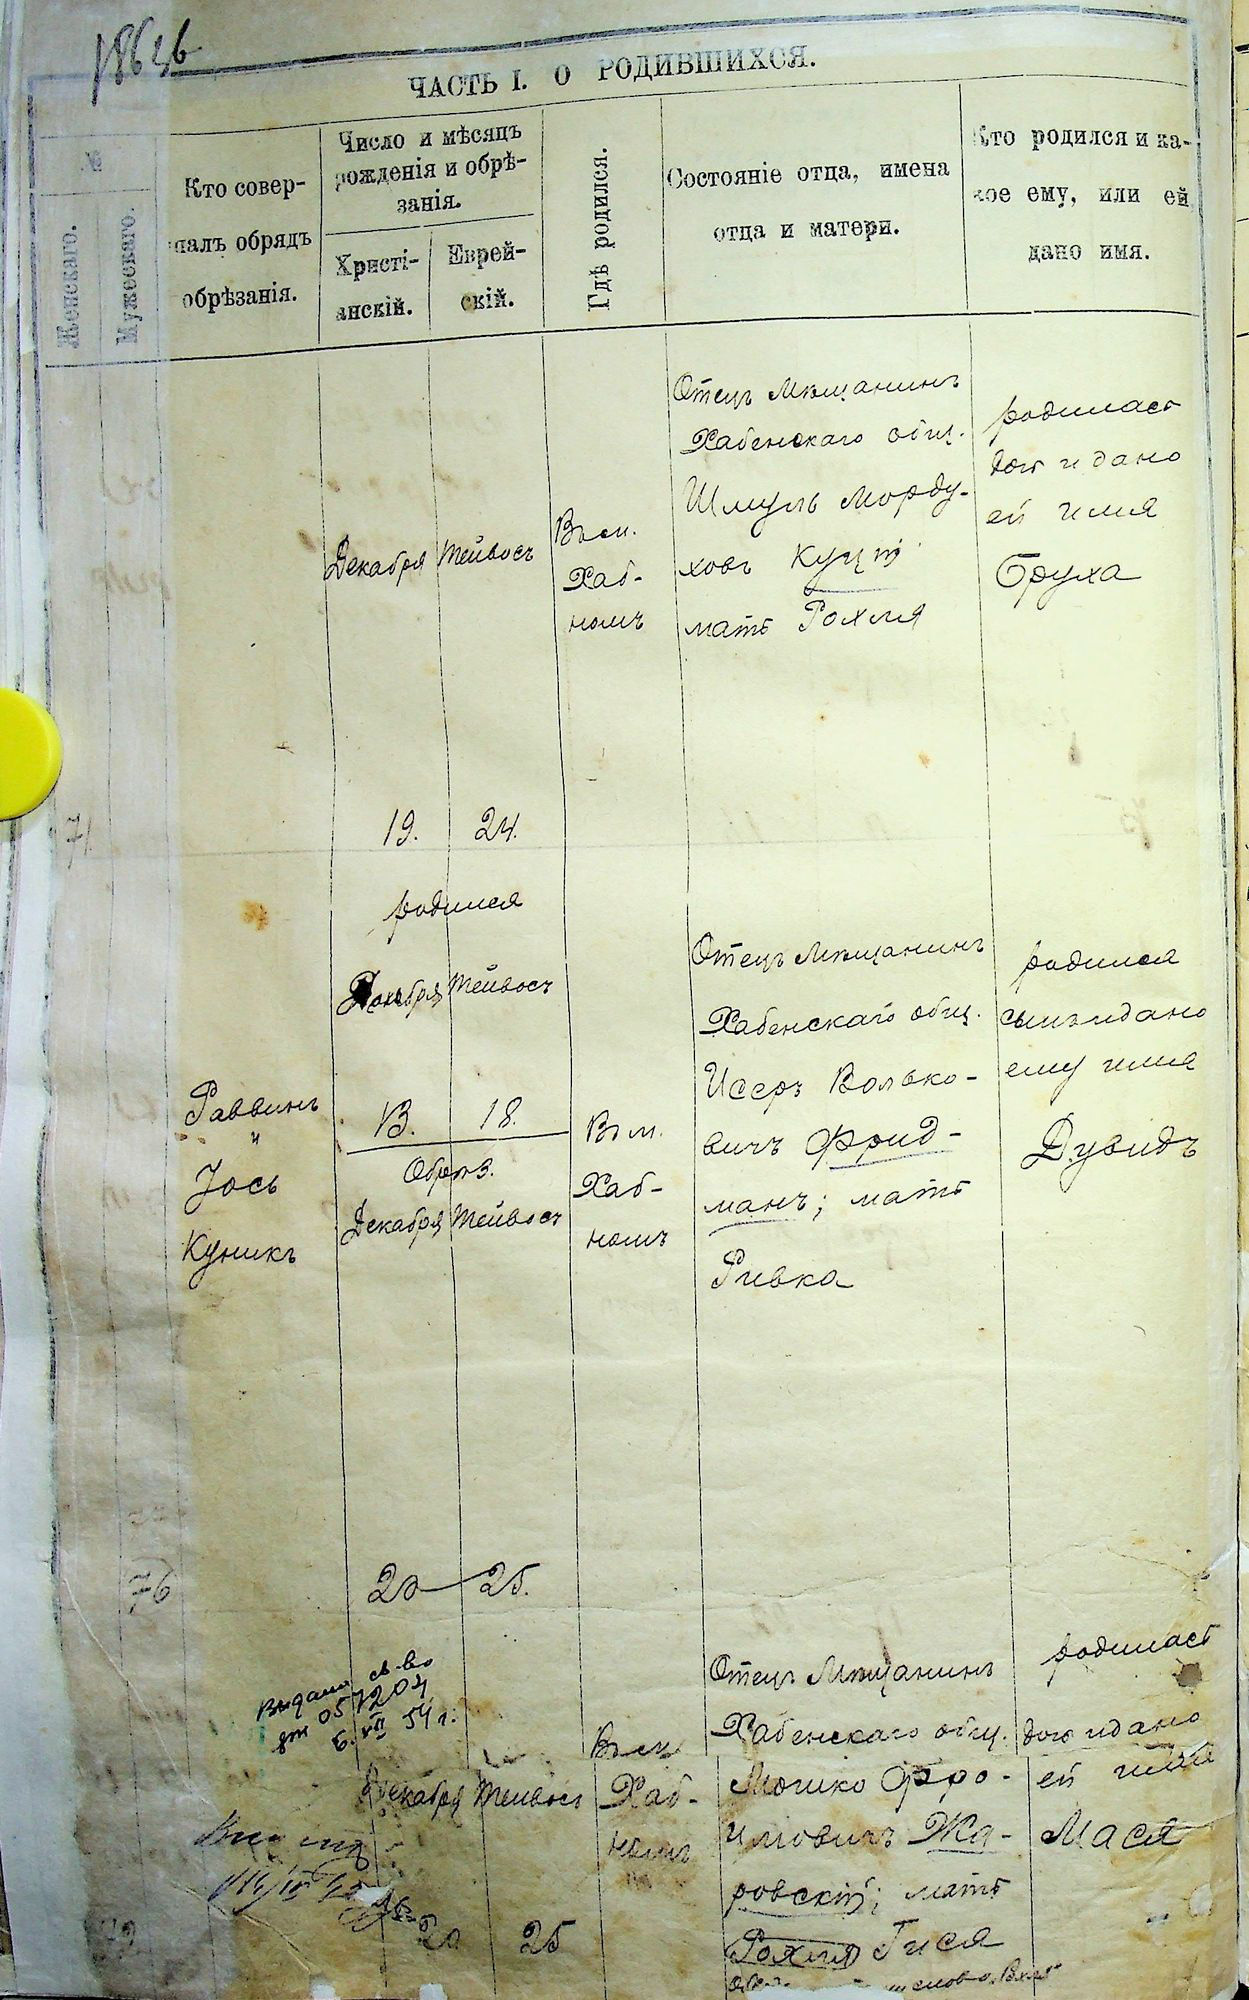 ЧАСТЬ I. О РОДИВШИХСЯ.
№
Женскаго.
Мужескаго.
Кто совер-
шалъ обрядъ
обрѣзанія.
Число и мѣсяцъ
рожденія и обрѣ-
занія.
Христі-
анскій.
Еврей-
скій.
Гдѣ родился.
Состояніе отца, имена
отца и матери.
Кто родился и ка-
кое ему, или ей
дано имя.
71.
Декабря Тейвосъ
19. 24.
Въ м.
Хаб-
номъ
Отецъ Мѣщанинъ
Хабенскаго общ.
Шмуль Морду-
ховъ Куцъ
мать Рохля
родилась
дочь и дано
ей имя
Бруха
76
Раввинъ
и
Іось
Куникъ
родился
Декабря Тейвосъ
13. 18.
Обрѣз.
Декабря Тейвосъ
20 25.
Въ м.
Хаб-
номъ
Отецъ Мѣщанинъ
Хабенскаго общ.
Исеръ Волько-
вичъ Фрид-
манъ; мать
Ривка
родился
сынъ и дано
ему имя
Дувидъ
72
Выдано св-во
057204
6.VII 54 г.
Декабря Тейвосъ
20 25
Въ м.
Хаб-
номъ
Отецъ Мѣщанинъ
Хабенскаго общ.
Мошко Фро-
имовичъ Жа-
ровскій; мать
Рохля Гися
родилась
дочь и дано
ей имя
Мася